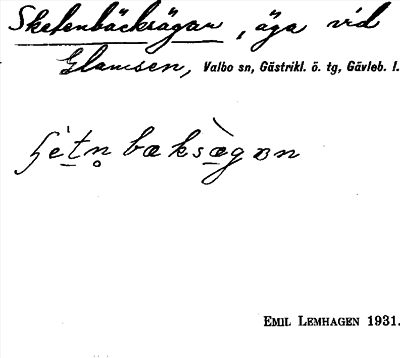 Sketenbäcksägar, äga vid
Glamsen, Valbo sn, Gästrikl. ö. tg, Gävleb. l.
ʃètn̥bæksæ̀gɒn
EMIL LEMHAGEN 1931.